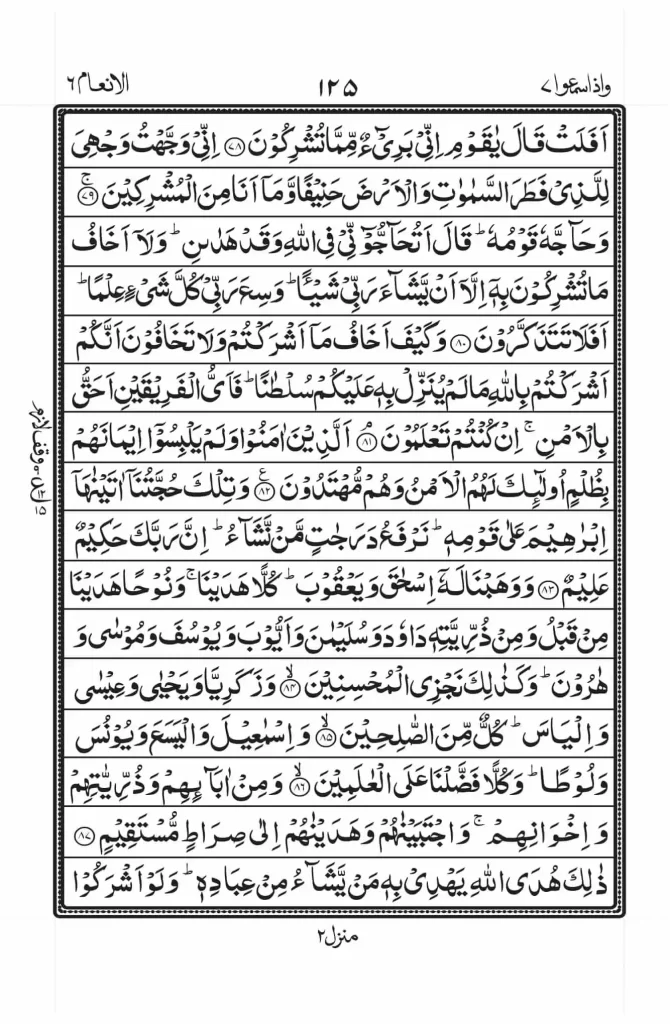 واذاسمعوا ۷
۱۲۵
الانعام ۶
اَفَلَتْ قَالَ يٰقَوْمِ اِنِّىْ بَرِىْٓءٌ مِّمَّا تُشْرِكُوْنَ ۝۷۸ اِنِّىْ وَجَّهْتُ وَجْهِىَ
لِلَّذِىْ فَطَرَ السَّمٰوٰتِ وَالْاَرْضَ حَنِيْفًا وَّمَاۤ اَنَا مِنَ الْمُشْرِكِيْنَ ۝۷۹ۚ
وَحَآجَّهٗ قَوْمُهٗ ؕ قَالَ اَتُحَآجُّوْٓنِّىْ فِى اللّٰهِ وَقَدْ هَدٰىنِ ؕ وَلَاۤ اَخَافُ
مَا تُشْرِكُوْنَ بِهٖۤ اِلَّاۤ اَنْ يَّشَآءَ رَبِّىْ شَيْـًٔا ؕ وَسِعَ رَبِّىْ كُلَّ شَىْءٍ عِلْمًا ؕ
اَفَلَا تَتَذَكَّرُوْنَ ۝۸۰ وَكَيْفَ اَخَافُ مَاۤ اَشْرَكْتُمْ وَلَا تَخَافُوْنَ اَنَّكُمْ
اَشْرَكْتُمْ بِاللّٰهِ مَا لَمْ يُنَزِّلْ بِهٖ عَلَيْكُمْ سُلْطٰنًا ؕ فَاَىُّ الْفَرِيْقَيْنِ اَحَقُّ
بِالْاَمْنِ ۚ اِنْ كُنْتُمْ تَعْلَمُوْنَ ۝۸۱ۘ اَلَّذِيْنَ اٰمَنُوْا وَلَمْ يَلْبِسُوْۤا اِيْمَانَهُمْ
بِظُلْمٍ اُولٰٓئِكَ لَهُمُ الْاَمْنُ وَهُمْ مُّهْتَدُوْنَ ۝۸۲ع وَتِلْكَ حُجَّتُنَاۤ اٰتَيْنٰهَاۤ
اِبْرٰهِيْمَ عَلٰى قَوْمِهٖ ؕ نَرْفَعُ دَرَجٰتٍ مَّنْ نَّشَآءُ ؕ اِنَّ رَبَّكَ حَكِيْمٌ
عَلِيْمٌ ۝۸۳ وَوَهَبْنَا لَهٗۤ اِسْحٰقَ وَيَعْقُوْبَ ؕ كُلًّا هَدَيْنَا ۚ وَنُوْحًا هَدَيْنَا
مِنْ قَبْلُ وَمِنْ ذُرِّيَّتِهٖ دَاوٗدَ وَسُلَيْمٰنَ وَاَيُّوْبَ وَيُوْسُفَ وَمُوْسٰى وَ
هٰرُوْنَ ؕ وَكَذٰلِكَ نَجْزِى الْمُحْسِنِيْنَ ۝۸۴ۙ وَزَكَرِيَّا وَيَحْيٰى وَعِيْسٰى
وَاِلْيَاسَ ؕ كُلٌّ مِّنَ الصّٰلِحِيْنَ ۝۸۵ۙ وَاِسْمٰعِيْلَ وَالْيَسَعَ وَيُوْنُسَ
وَلُوْطًا ؕ وَكُلًّا فَضَّلْنَا عَلَى الْعٰلَمِيْنَ ۝۸۶ۙ وَمِنْ اٰبَآئِهِمْ وَذُرِّيّٰتِهِمْ
وَاِخْوَانِهِمْ ۚ وَاجْتَبَيْنٰهُمْ وَهَدَيْنٰهُمْ اِلٰى صِرَاطٍ مُّسْتَقِيْمٍ ۝۸۷
ذٰلِكَ هُدَى اللّٰهِ يَهْدِىْ بِهٖ مَنْ يَّشَآءُ مِنْ عِبَادِهٖ ؕ وَلَوْ اَشْرَكُوْا
وقف لازم
منزل ۲